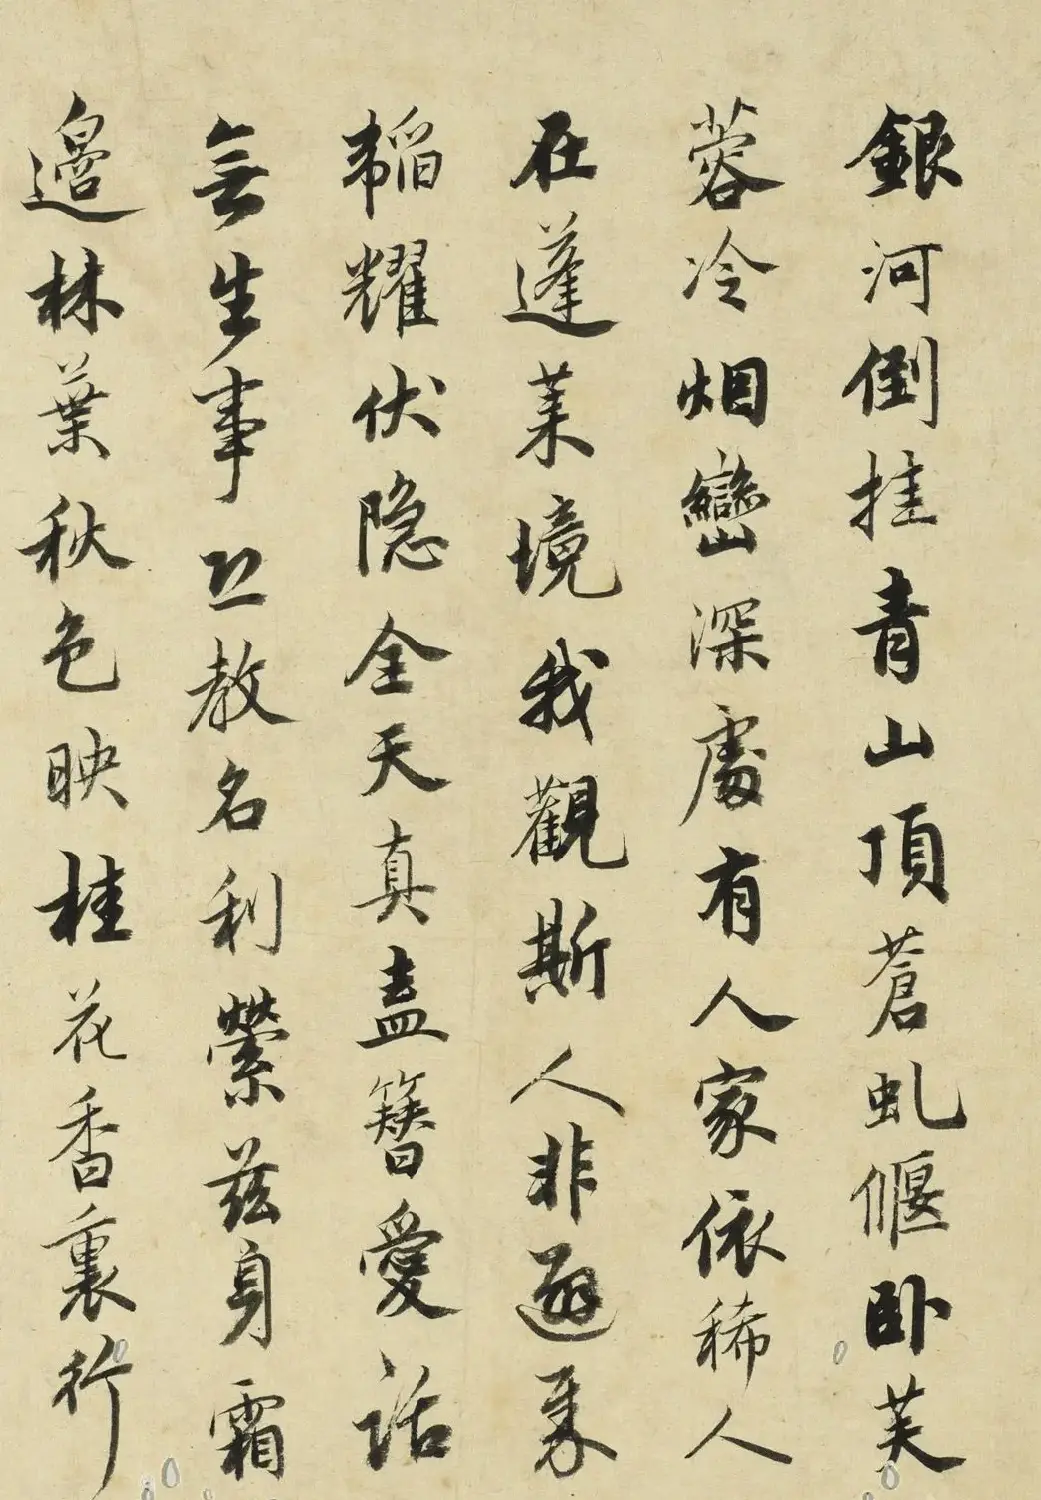 銀河倒挂青山頂蒼虬偃卧芙
蓉冷烟巒深處有人家依稀人
在蓬莱境我觀斯人非避秦
韜耀伏隐全天真盍簪愛話
無生事不教名利縈兹身霜
邊林葉秋色映桂花香裏行